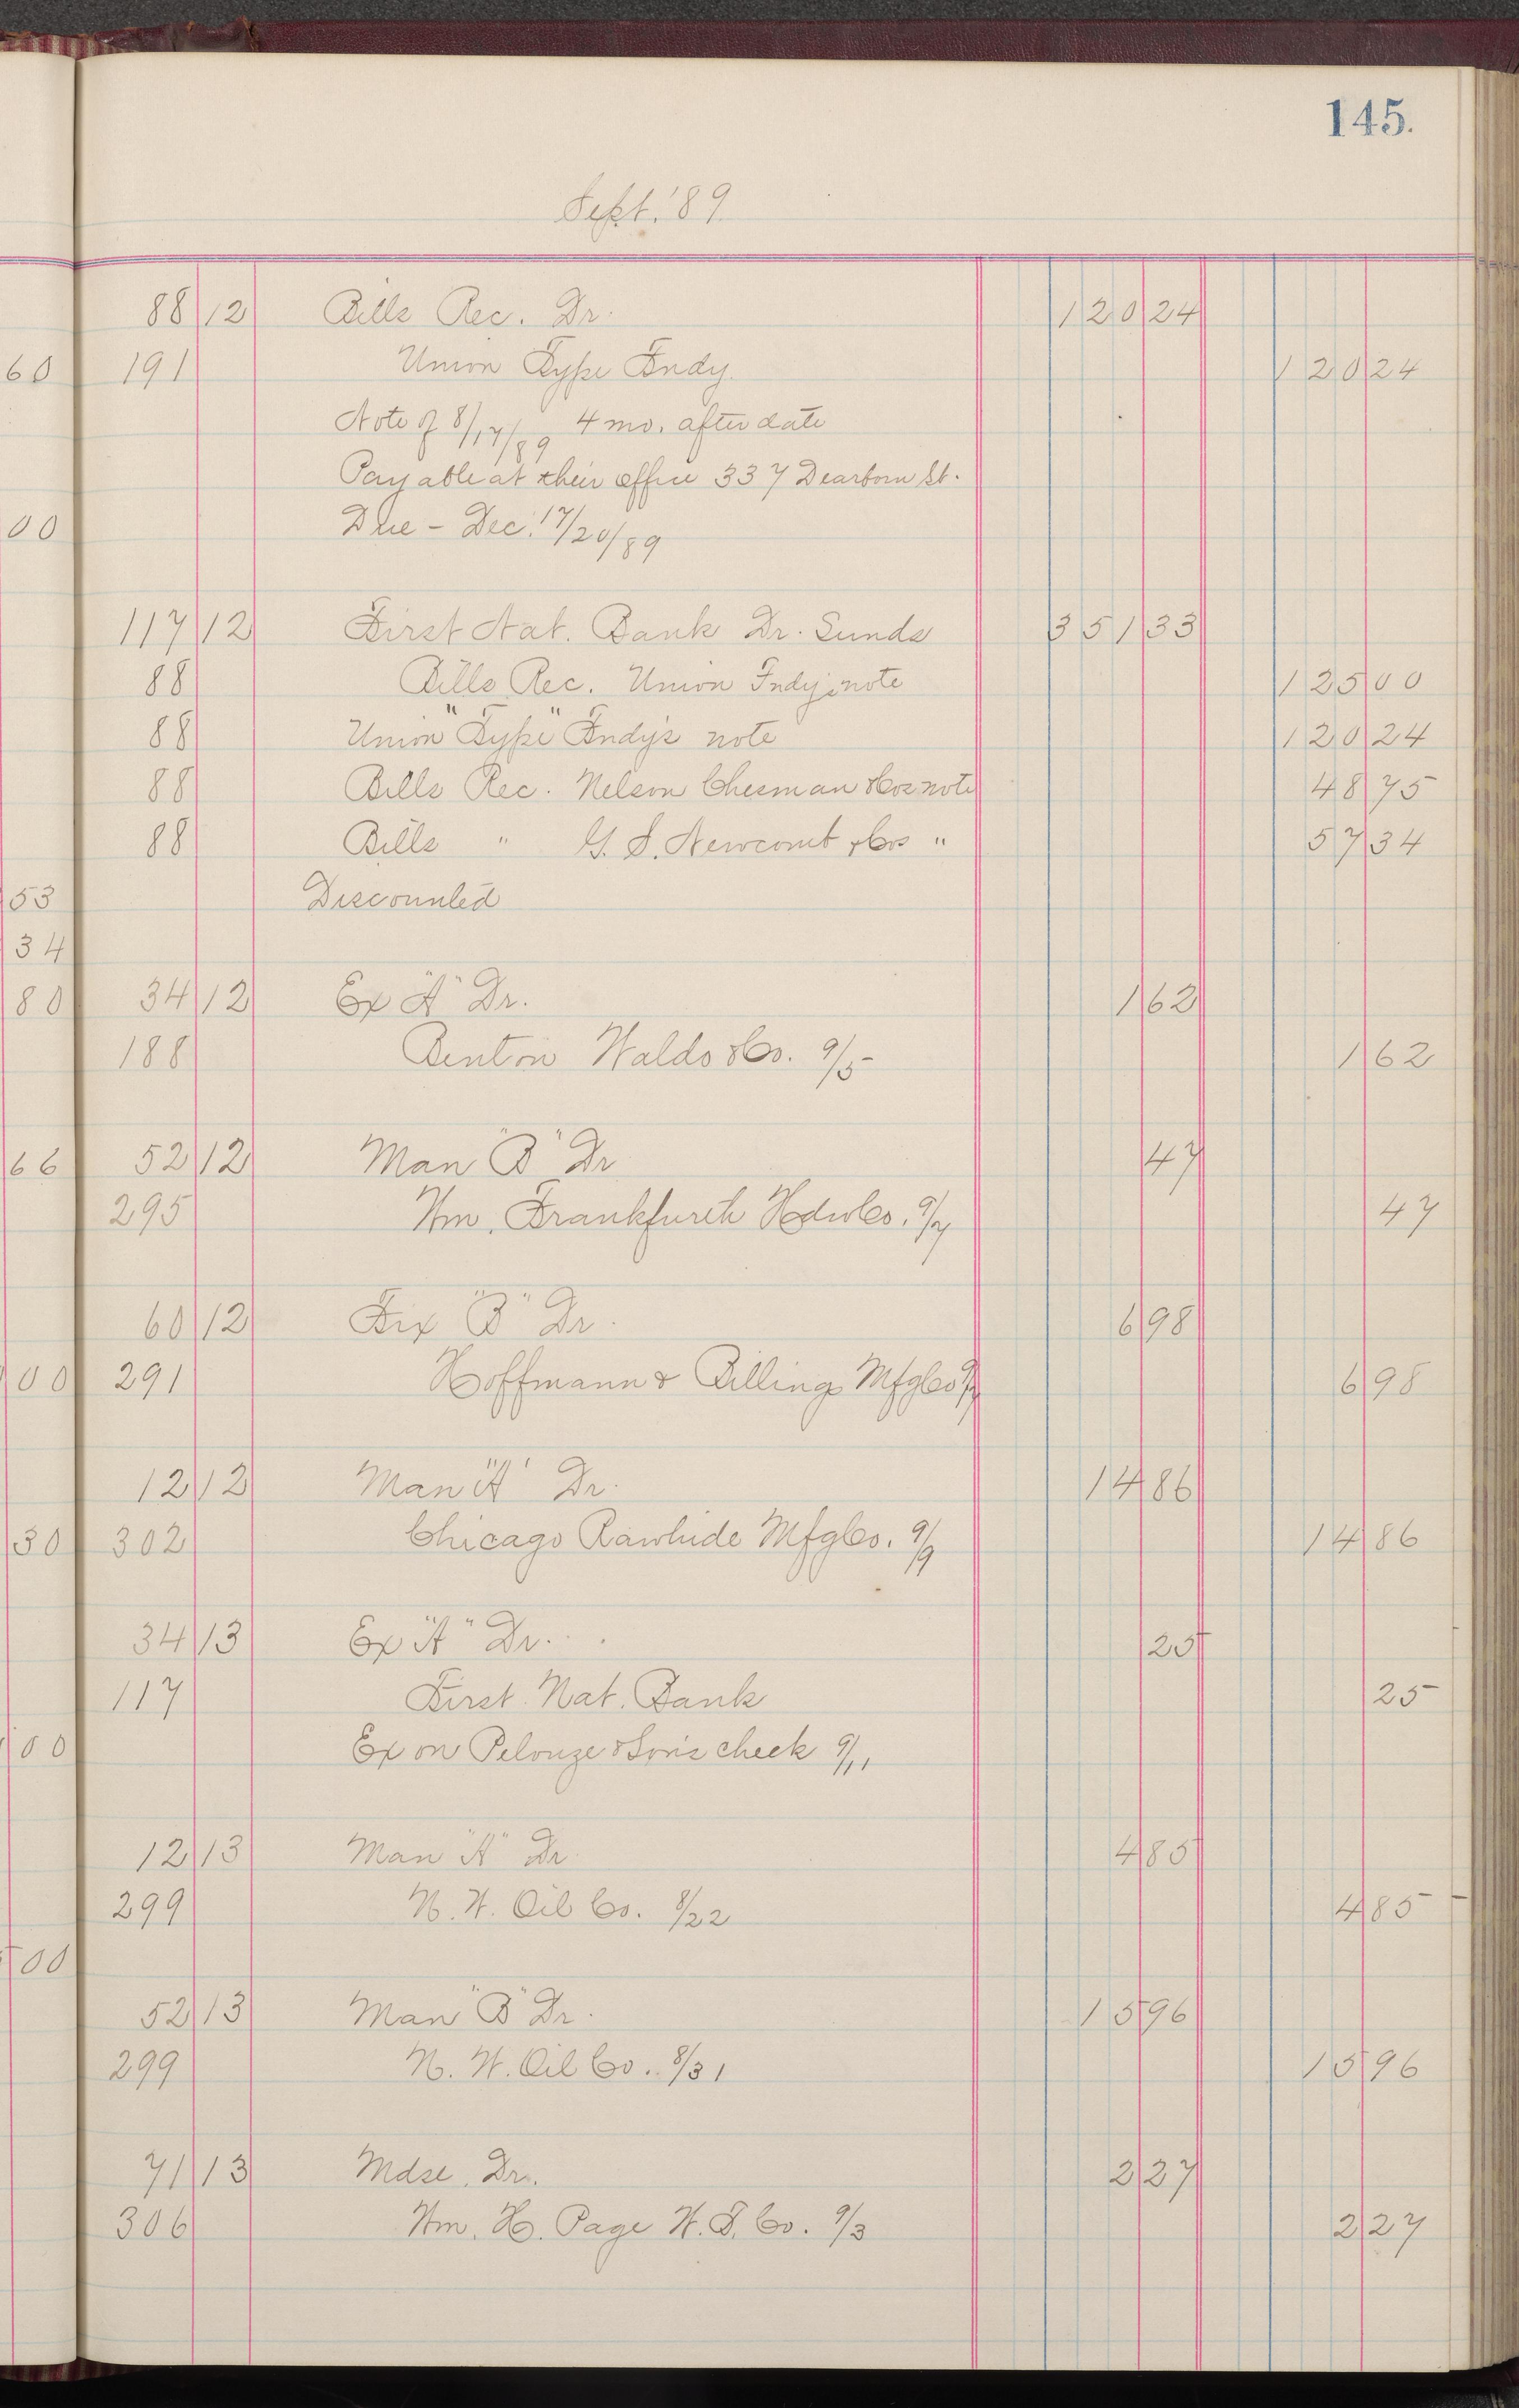 145.
Sept. '89
88 12 Bills Rec. Dr. 120 24
60 191 Union Type Fndy. 120 24
Note of 8/17/89 4 mo. after date
Payable at their office 337 Dearborn St.
00 Due - Dec. 17/20/89
117 12 First Nat. Bank Dr. Sunds 351 33
88 Bills Rec. Union Fndy's note 125 00
88 Union "Type" Fndy's note 120 24
88 Bills Rec. Nelson Chesman &Cos note 48 75
88 Bills " G. S. Newcomb &Cos " 57 34
53 Discounted
34
80 34 12 Ex "A" Dr. 1 62
188 Benton Waldo &Co. 9/5 1 62
66 52 12 Man "B" Dr 47
295 Wm. Frankfurth HdwCo. 9/7 47
60 12 Fix "B" Dr. 6 98
00 291 Hoffmann & Billings MfgCo 9/7 6 98
12 12 Man "A" Dr. 14 86
30 302 Chicago Rawhide MfgCo. 9/9 14 86
34 13 Ex "A" Dr. 25
117 First Nat. Bank 25
00 Ex on Pelouze &Son's check 9/11
12 13 Man "A" Dr 4 85
299 N. W. Oil Co. 8/22 4 85
00
52 13 Man "B" Dr. 15 96
299 N. W. Oil Co. 8/31 15 96
71 13 Mdse. Dr. 2 27
306 Wm. H. Page W. T. Co. 9/3 2 27